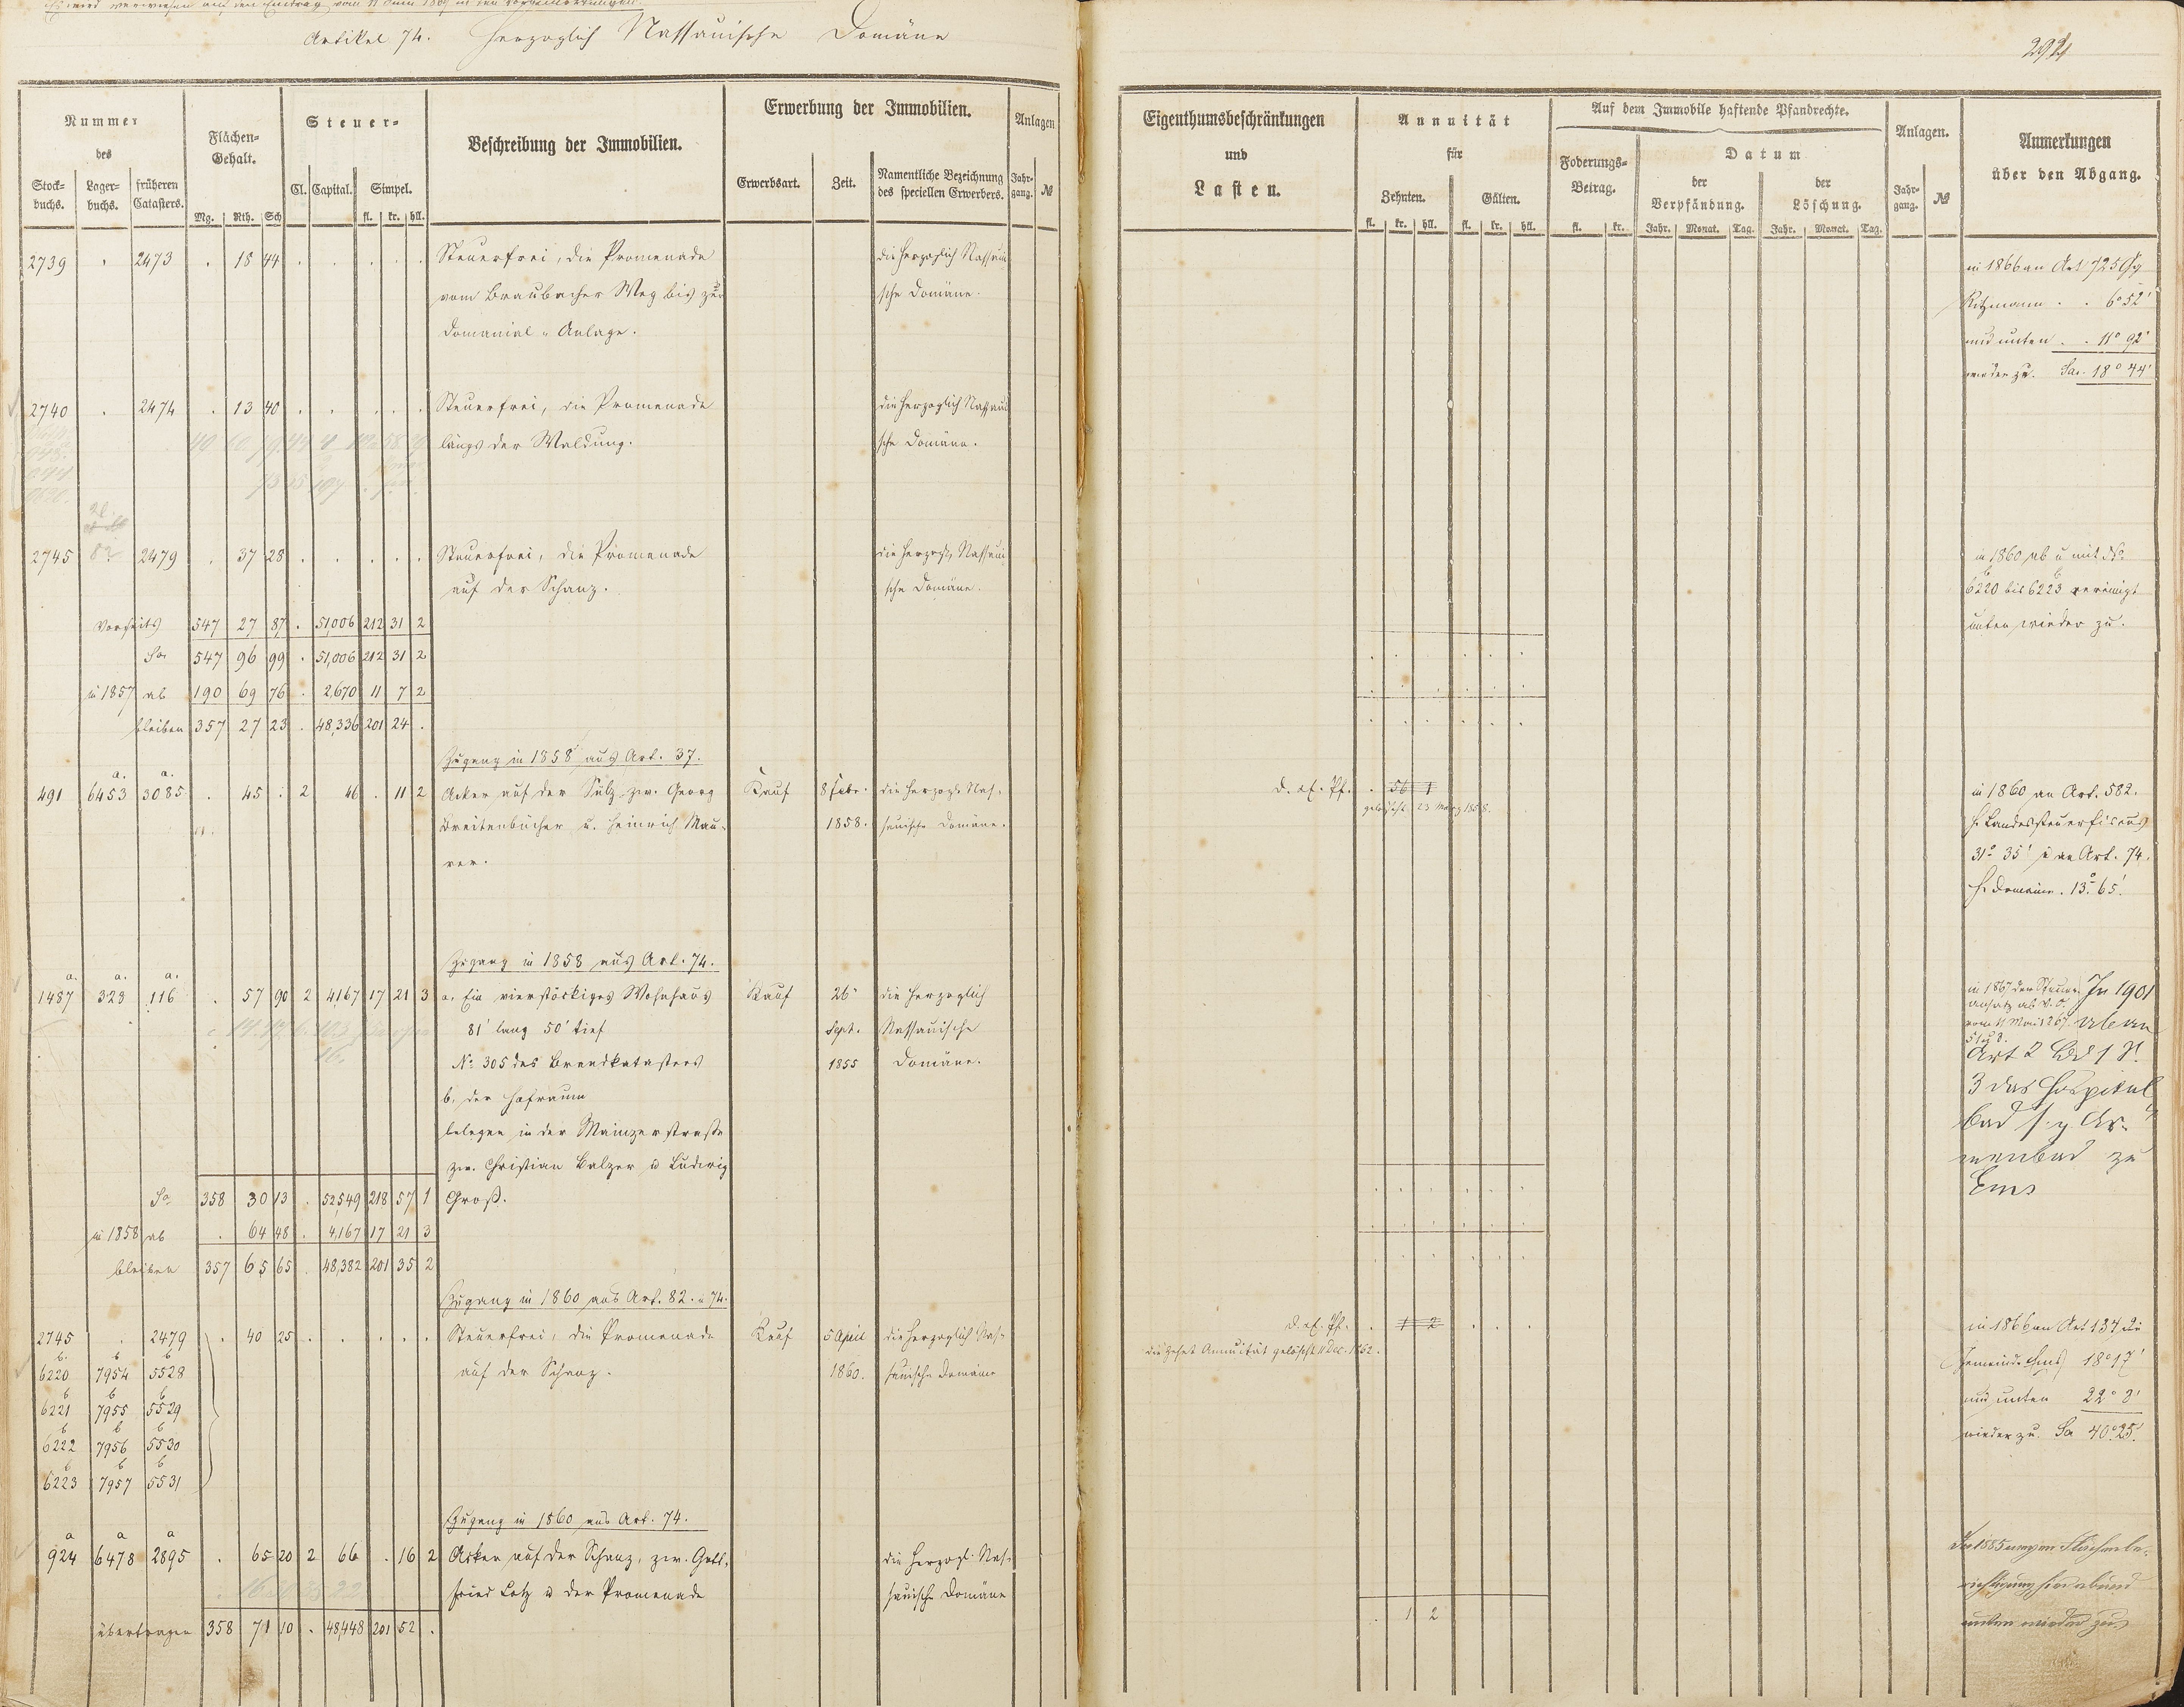 Artikel 74. Herzoglich Nassauische Domäne
292
Nummer des
Stock-buchs. Lager-buchs. früheren Catasters.
Flächen-Gehalt.
Mg. Rth. Sch
Steuer-
Cl. Capital. Simpel.
fl. kr. hll.
Beschreibung der Immobilien.
Erwerbung der Immobilien.
Erwerbsart. Zeit. Namentliche Bezeichnung des speciellen Erwerbers.
Anlagen
Jahr-gang. №
Eigenthumsbeschränkungen und Lasten.
Annuität für
Zehnten. Gülten.
fl. kr. hll. fl. kr. hll.
Auf dem Immobile haftende Pfandrechte.
Foderungs-Betrag.
fl. kr.
Datum
der Verpfändung. der Löschung.
Jahr. Monat. Tag. Jahr. Monat. Tag.
Anlagen.
Jahr-gang. №
Anmerkungen über den Abgang.
2739 . 2473 . 18 44 . . . . . Steuerfrei, die Promenade die Herzoglich Nassaui
vom Braubacher Weg bis zur sche Domäne.
Domanial-Anlage.
in 1866 an Art 725
. . 6° 52'
und unten . . 11° 92'
wieder zu. Sa. 18° 44'
2740 . 2474 . 13 40 . . . . . Steuerfrei, die Promenade die Herzoglich Nassaui
längs der Waldung. sche Domäne.
2745 2479 . 37 28 . . . . . Steuerfrei, die Promenade die Herzogl. Nassaui
auf der Schanz. sche Domäne.
in 1860 ab u mit No
6220 bis 6223 vereinigt
unten wieder zu.
Vorseits 547 27 87 . 51,006 212 31 2
Sa. 547 96 99 . 51,006 212 31 2
in 1857 ab 190 69 76 . 2,670 11 7 2
bleiben 357 27 23 . 48,336 201 24 .
Zugang in 1858 aus Art. 37.
a. a.
491 6453 3085 . 45 . 2 46 . 11 2 Acker auf der Sulz, zw. Georg Kauf 8 Febr. die Herzogl. Nas-
Breitenbücher u. Heinrich Mau- 1858. sauische Domäne.
rer.
d. ef. Pf. . 56 1
gelöscht 23 März 1858.
in 1860 an Art. 582.
H. Landessteuerfiscus
31° 35' u an Art. 74.
H. Domaine. 13° 65'.
Zugang in 1858 aus Art. 74.
a. a. a.
1487 323 116 . 57 90 2 4,167 17 21 3 a. Ein vierstöckiges Wohnhaus Kauf 26 die Herzoglich
81' lang 50' tief Sept. Nassauische
No 305 des Brandkatasters 1855 Domäne.
b. der Hofraum
belegen in der Mainzerstraße
zw. Christian Balzer u Ludwig
Groß.
In 1901
Art 2
3 das Hospital
bad s. g. Ar-
menbad zu
Ems
Sa 358 30 13 . 52,549 218 57 1
in 1858 ab . 64 48 . 4,167 17 21 3
bleiben 357 65 65 . 48,382 201 35 2
Zugang in 1860 aus Art. 82. u 74.
2745 . 2479 . 40 25 . . . . . Steuerfrei, die Promenade Kauf 5 April die Herzoglich Nas-
auf der Schanz. 1860. sauische Domäne
b. b b
6220 7954 5528
b b b
6221 7955 5529
b b b
6222 7956 5530
b b b
6223 7957 5531
d. ef. Pf. . 1 2 . . .
die Zehnt Annuität gelöscht 11 Dec. 1862.
in 1866 an Art 134 die
Gemeinde Ems 18° 17'
und unten 22° 8'
wieder zu. Sa 40° 25'.
Zugang in 1860 aus Art. 74.
a a a
924 6478 2895 . 65 20 2 66 . 16 2 Acker auf der Schanz, zw. Gott- die Herzogl. Nas-
fried Lotz u der Promenade sauische Domäne
In 1885 wegen Flächenbe-
richtigung hier ab und
unten wieder zu
übertragen 358 71 10 . 48,448 201 52 .
. 1 2